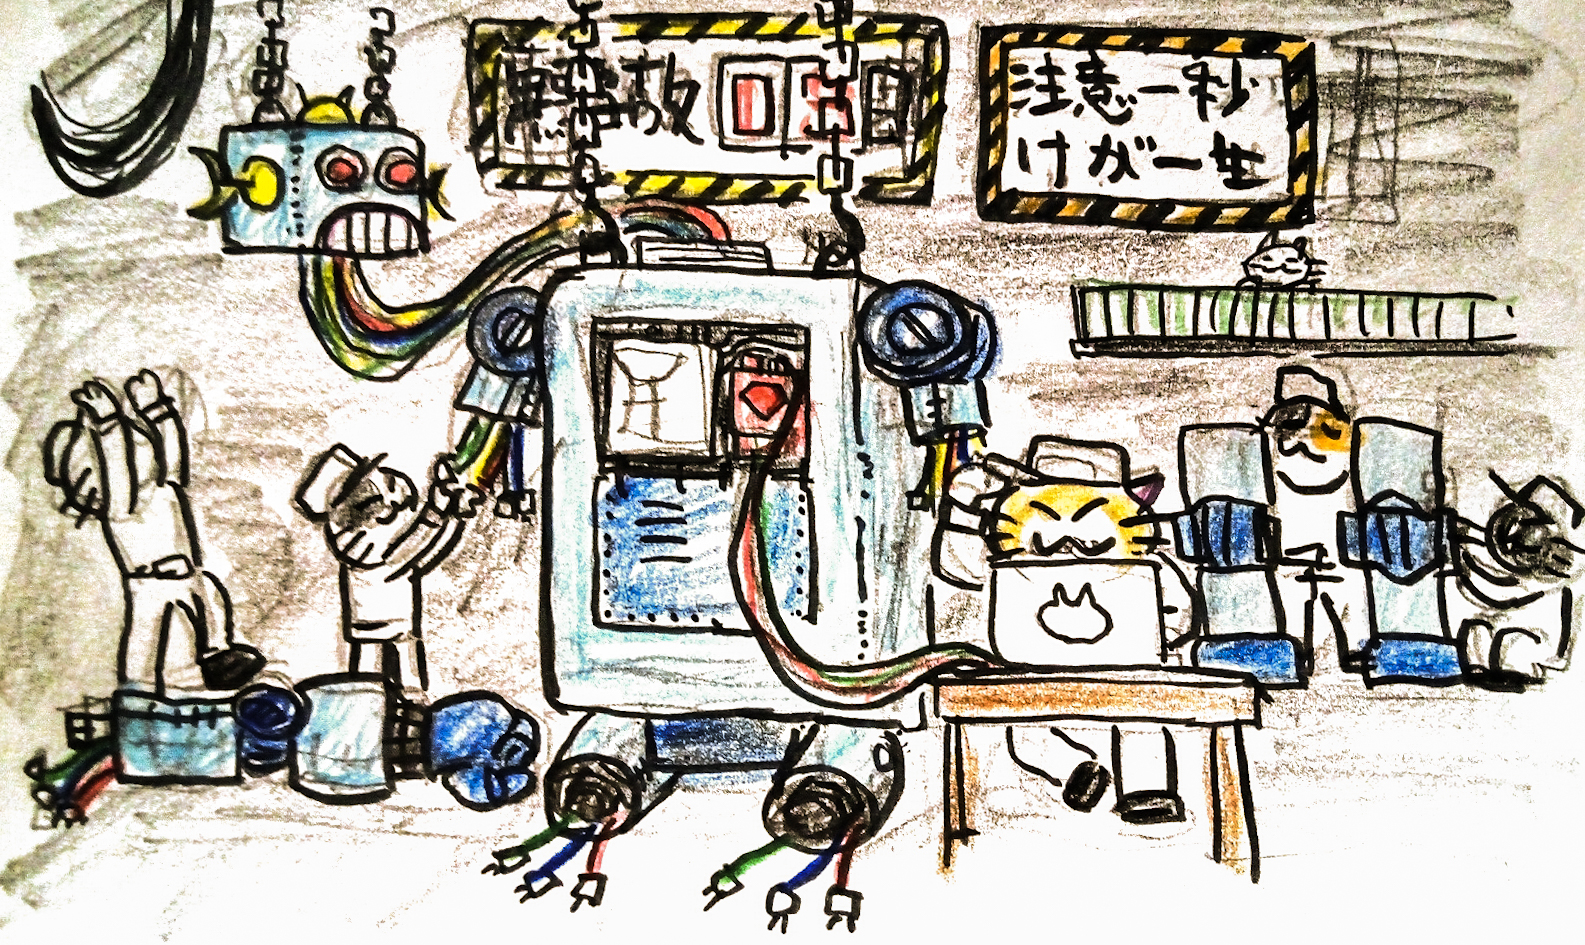 無事故 0 日
注意一秒
けが一生